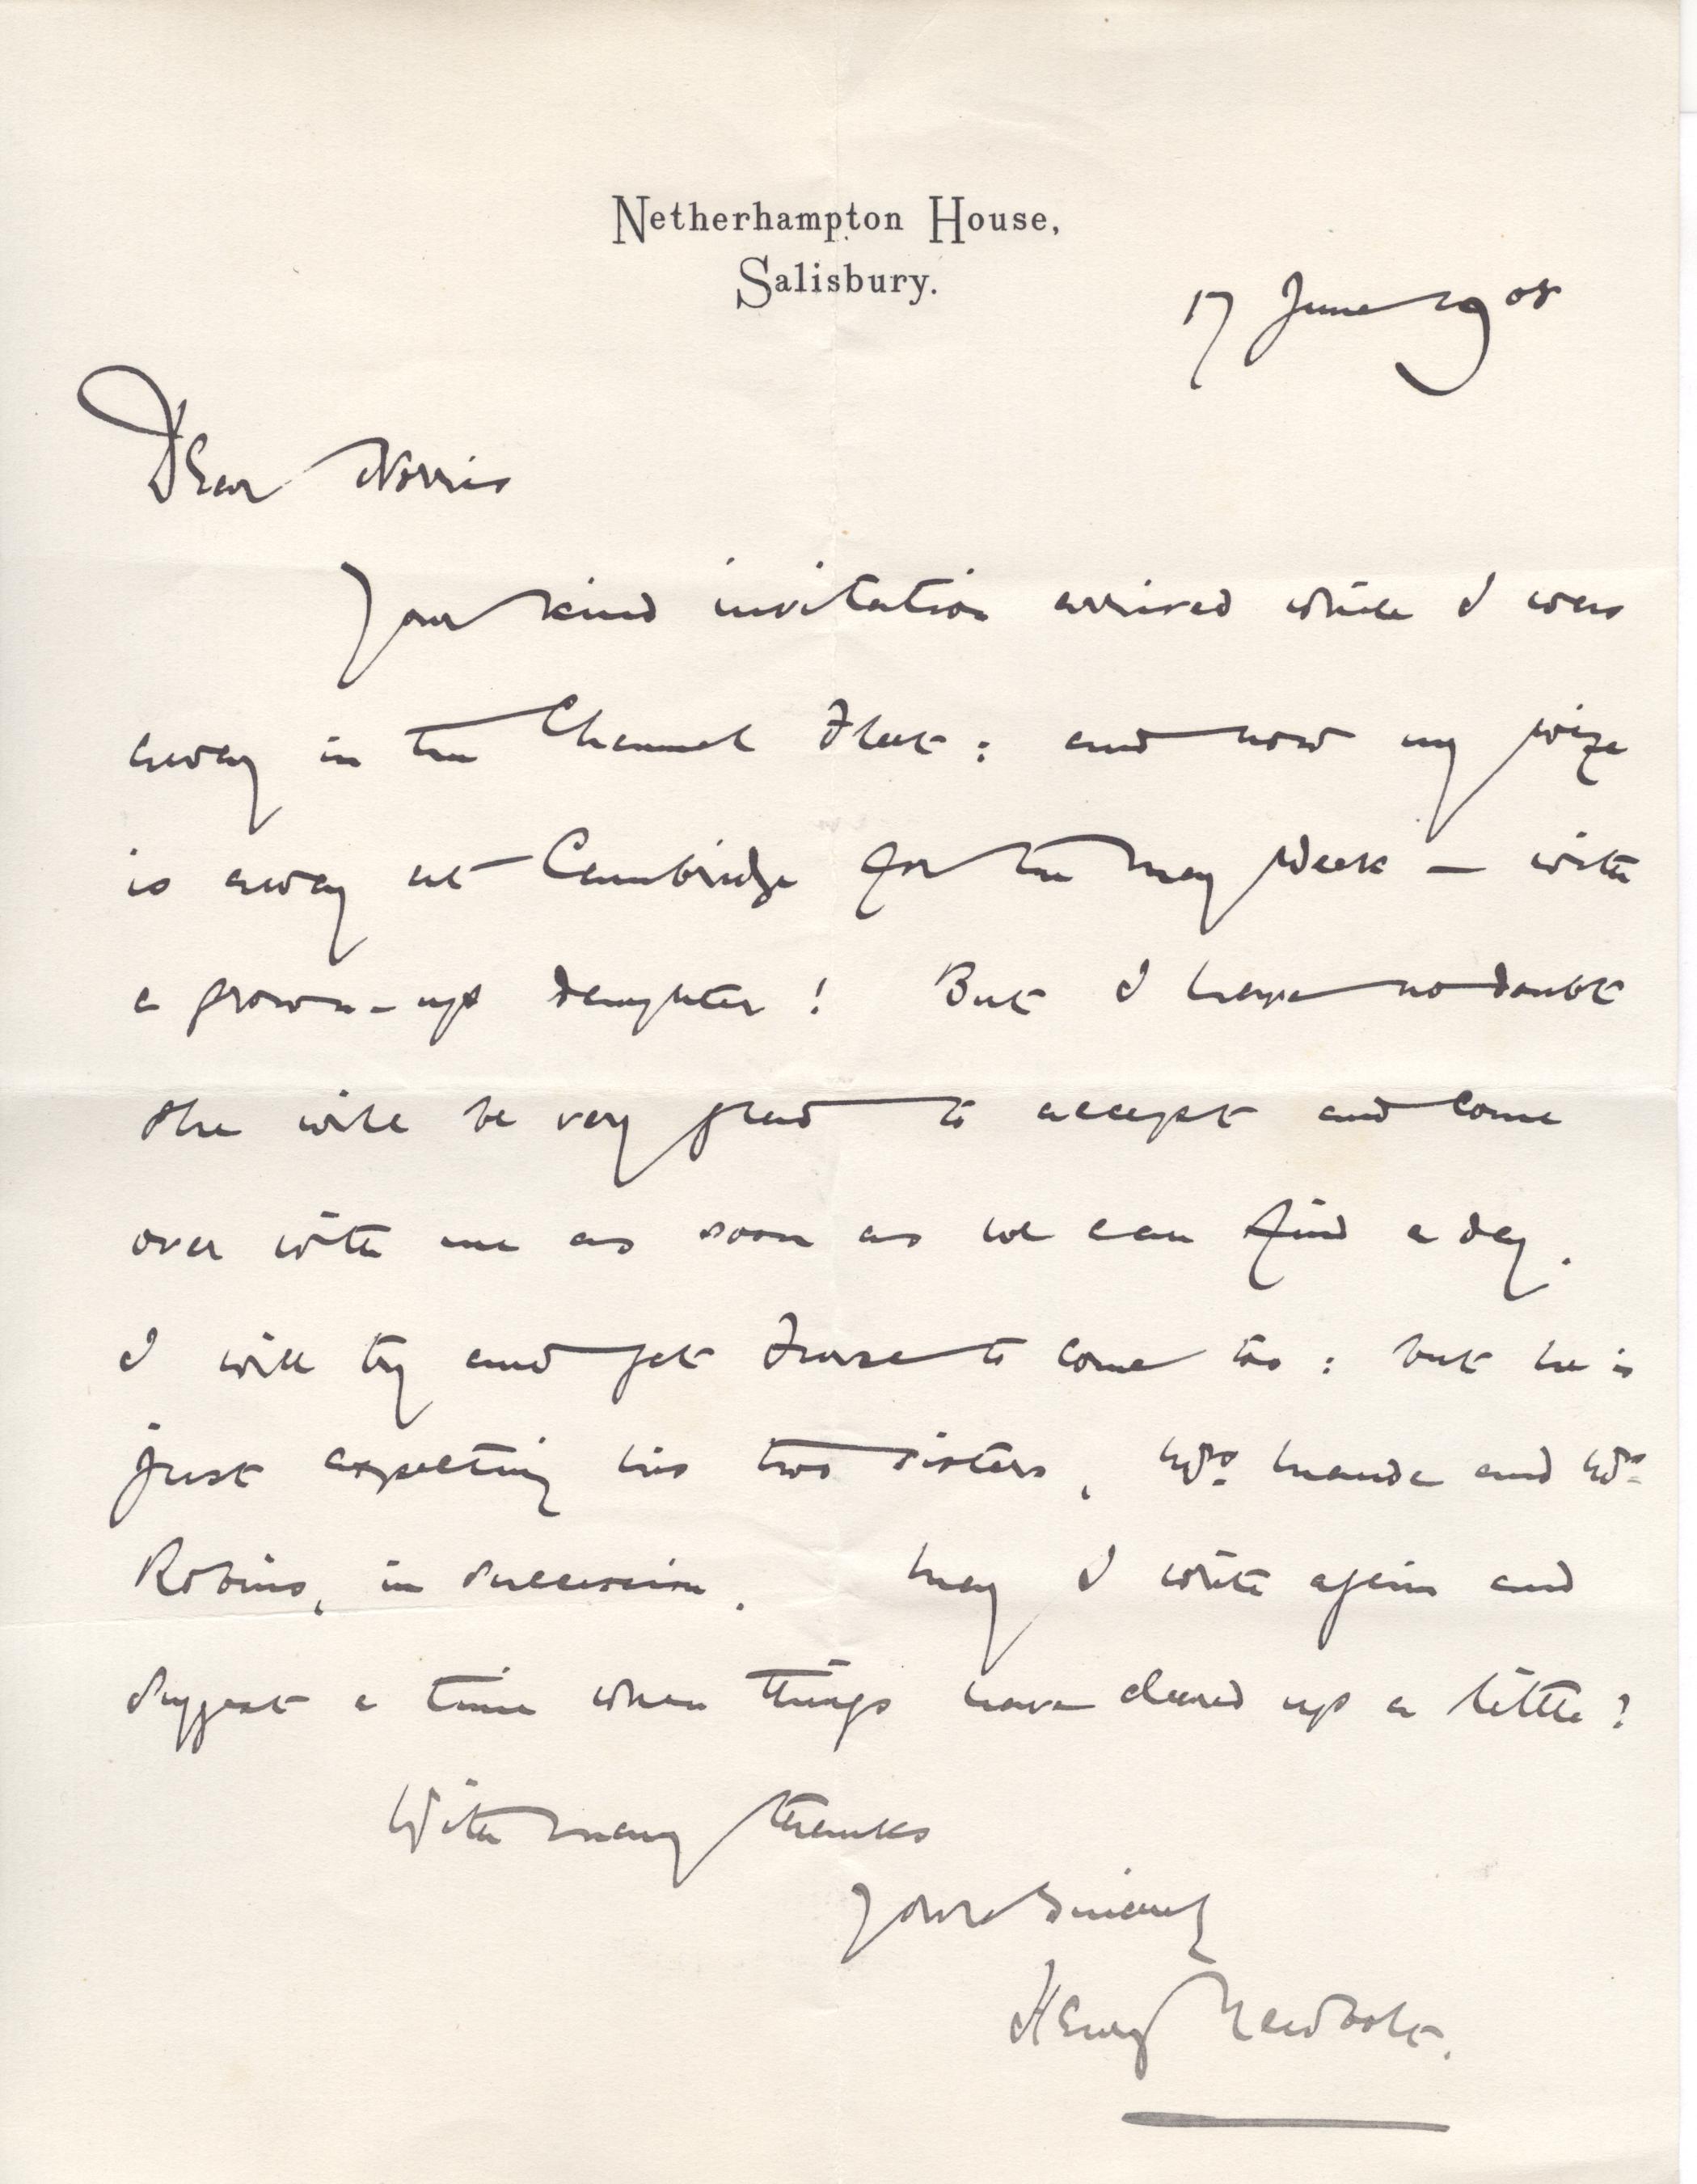 Netherhampton House,
Salisbury.
17 June 1908
Dear Norris
Your kind invitation arrived while I was
away in the Channel Fleet : and now my wife
is away at Cambridge for the May Week — with
a grown-up daughter ! But I have no doubt
she will be very glad to accept and come
over with me as soon as we can find a day.
I will try and get Furse to come too : but he is
just expecting his two sisters, Mrs. and Mrs.
Robins, in succession. May I write again and
suggest a time when things have cleared up a little ?
With many thanks
Yours sincerely
Henry Newbolt.